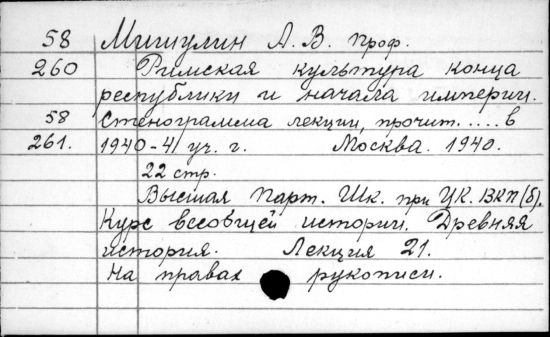 58 Мишулин А. В. проф.
260 Римская культура конца
республики и начала империи.
58 Стенограмма лекции, прочит. .... в
261. 1940-41 уч. г. Москва. 1940.
22 стр.
Высшая Парт. Шк. при ЦК. ВКП(б).
Курс всеобщей истории. Древняя
история. Лекция 21.
На правах рукописи.